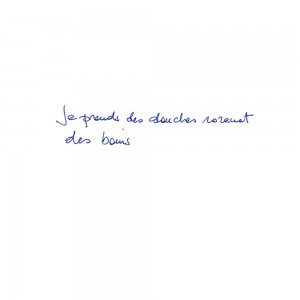 Je prends des douches rarement
des bains